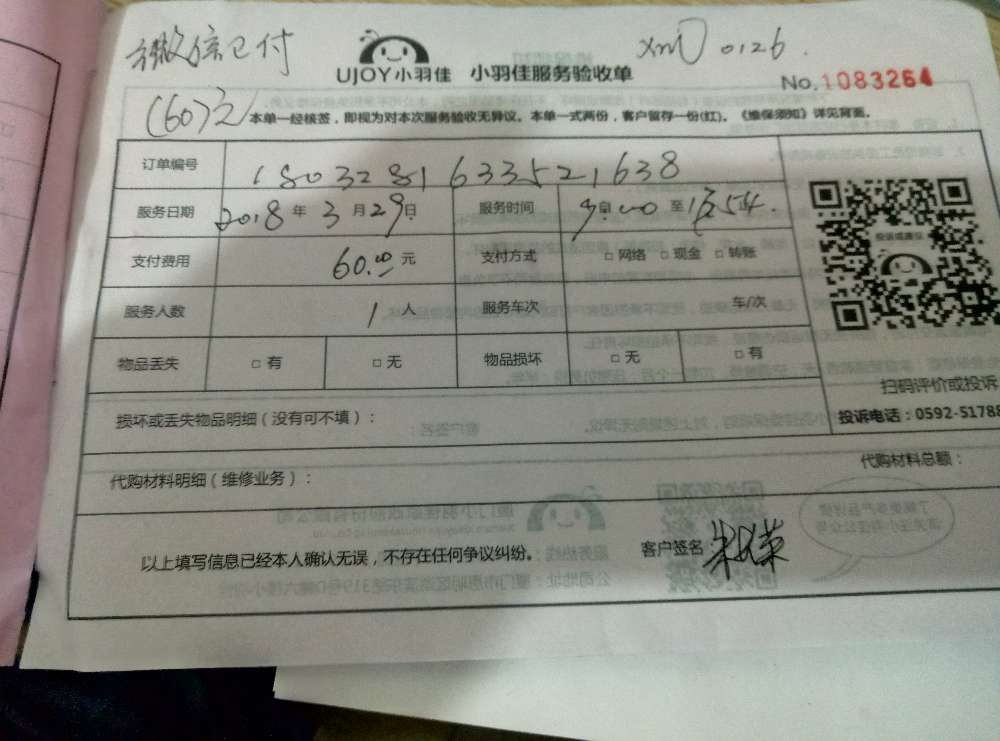 微信已付
xm 0126.
UJOY小羽佳 小羽佳服务验收单
No.1083264
(60)元
本单一经核签，即视为对本次服务验收无异议。本单一式两份，客户留存一份(红)。《维保须知》详见背面。
订单编号 180328163352 1638
服务日期 2018年3月29日 服务时间 9:00至
支付费用 60.00元 支付方式 □网络 □现金 □转账
服务人数 1人 服务车次 车/次
物品丢失 □有 □无 物品损坏 □无 □有
投诉或建议
扫码评价或投诉
损坏或丢失物品明细（没有可不填）：
投诉电话：0592-51788
代购材料明细（维修业务）：
代购材料总额：
以上填写信息已经本人确认无误，不存在任何争议纠纷。
客户签名